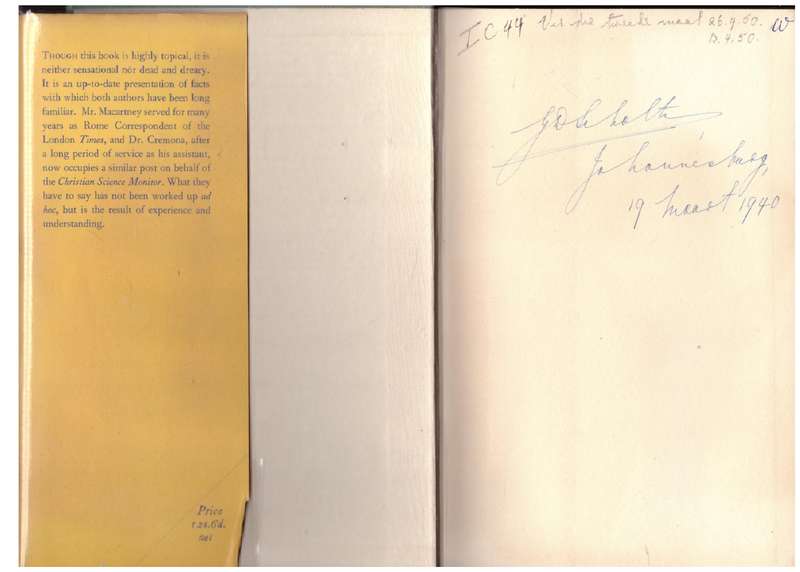 THOUGH this book is highly topical, it is
neither sensational nor dead and dreary.
It is an up-to-date presentation of facts
with which both authors have been long
familiar. Mr. Macartney served for many
years as Rome Correspondent of the
London Times, and Dr. Cremona, after
a long period of service as his assistant,
now occupies a similar post on behalf of
the Christian Science Monitor. What they
have to say has not been worked up ad
hoc, but is the result of experience and
understanding.
Price
12s. 6d.
net
I C 44 Vir die tweede maal 26.9.50. W
13.9.50.
G D Scholtz
Johannesburg,
19 Maart 1940